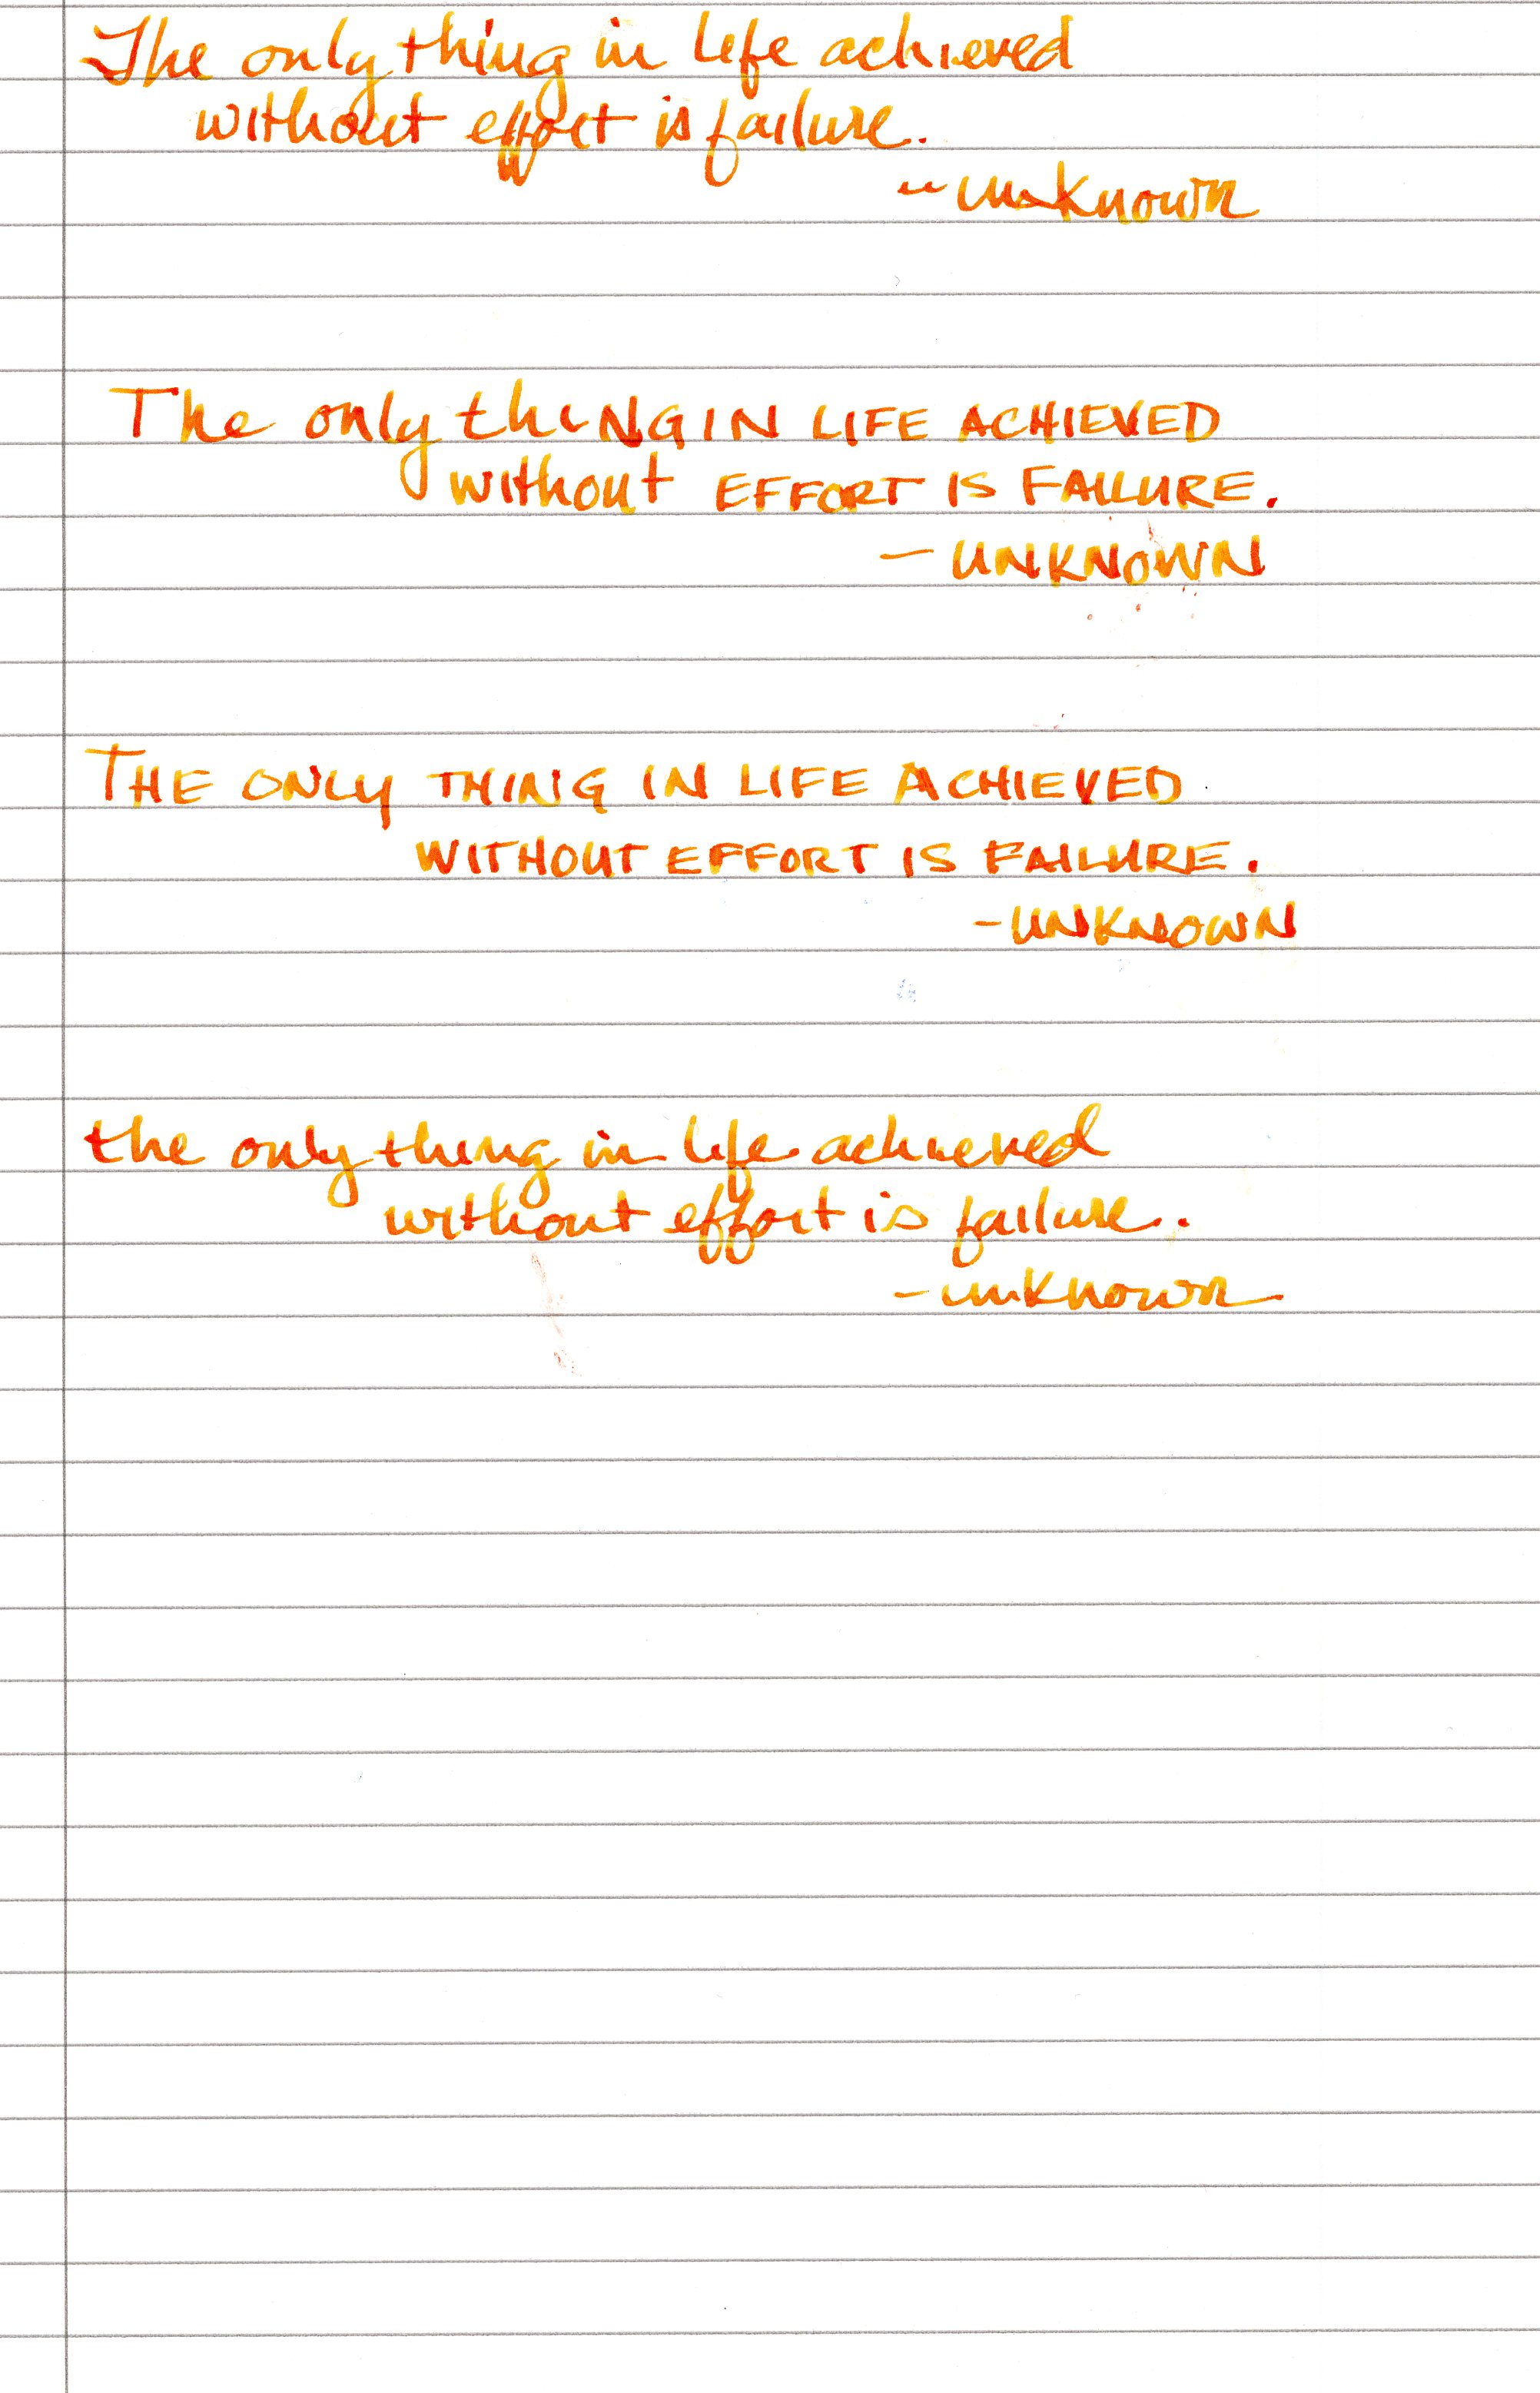 The only thing in life achieved
without effort is failure.
-- unknown
The only thiNG IN LIFE ACHIEVED
without EFFORT IS FAILURE.
- UNKNOWN
THE ONLY THING IN LIFE ACHIEVED
WITHOUT EFFORT IS FAILURE.
- UNKNOWN
the only thing in life achieved
without effort is failure.
- unknown